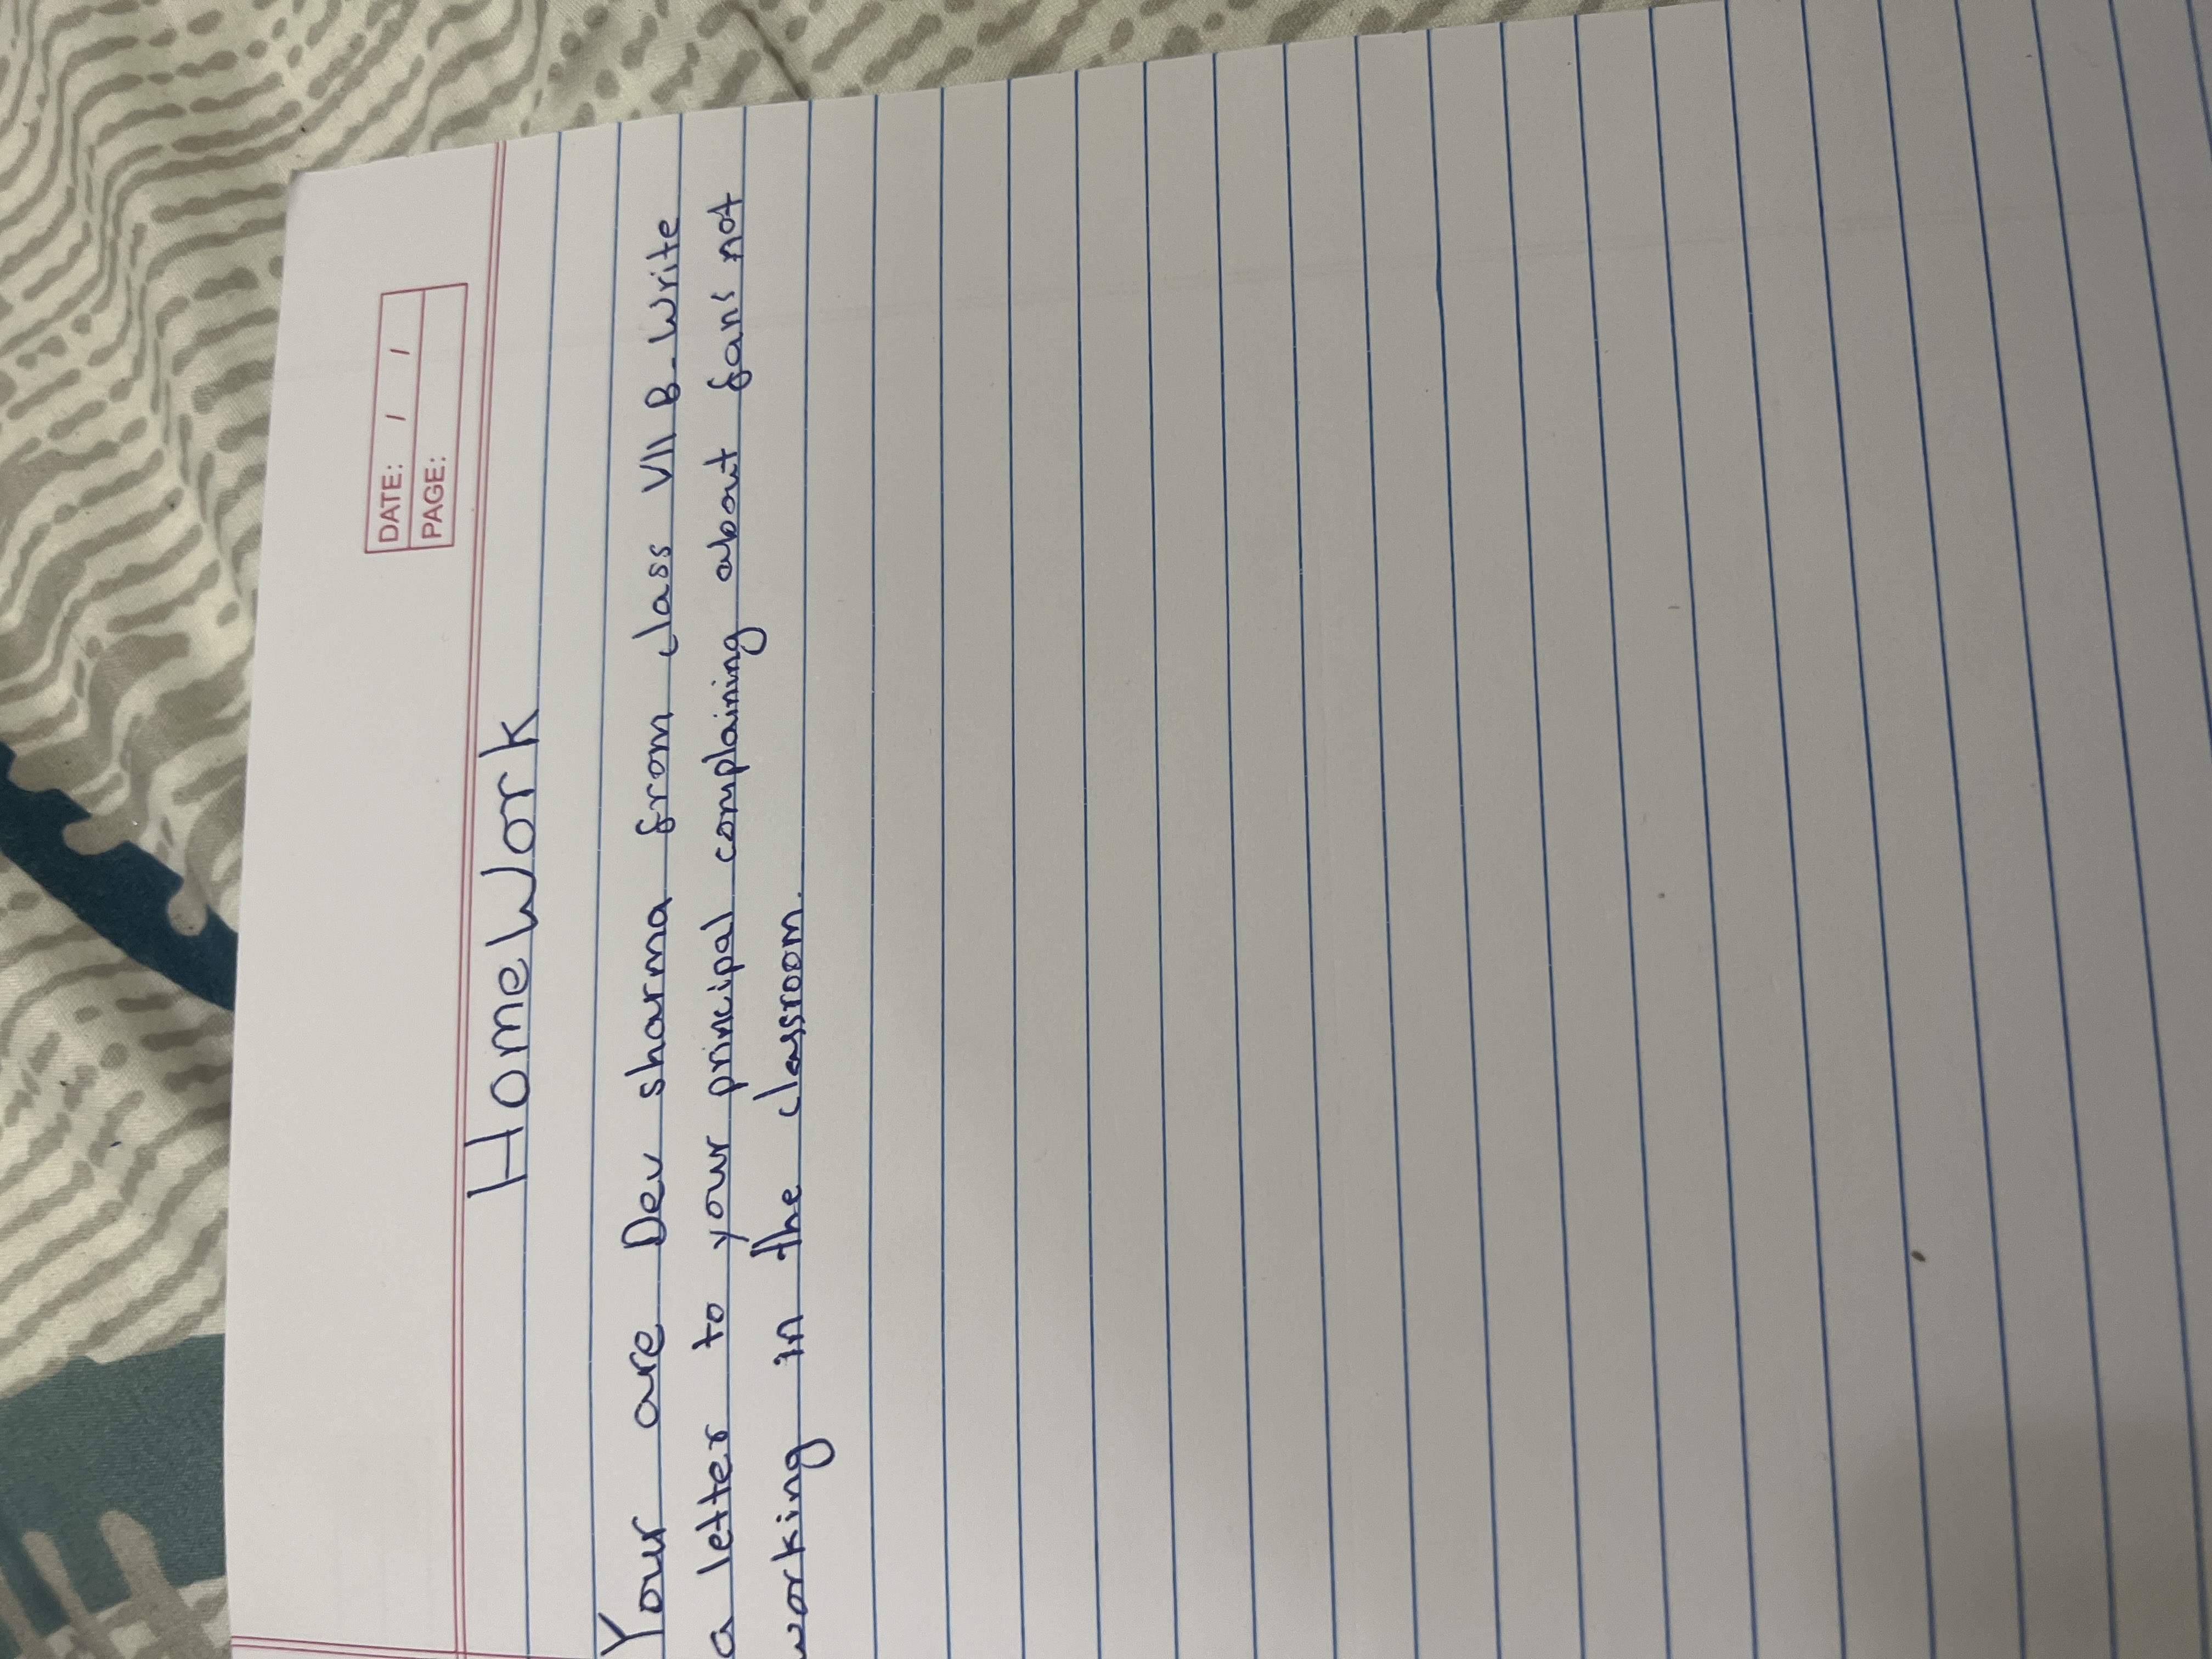 DATE: / /
PAGE:
HomeWork
Your are Dev sharma from class VII B. Write
a letter to your principal complaining about fans not
working in the classroom.